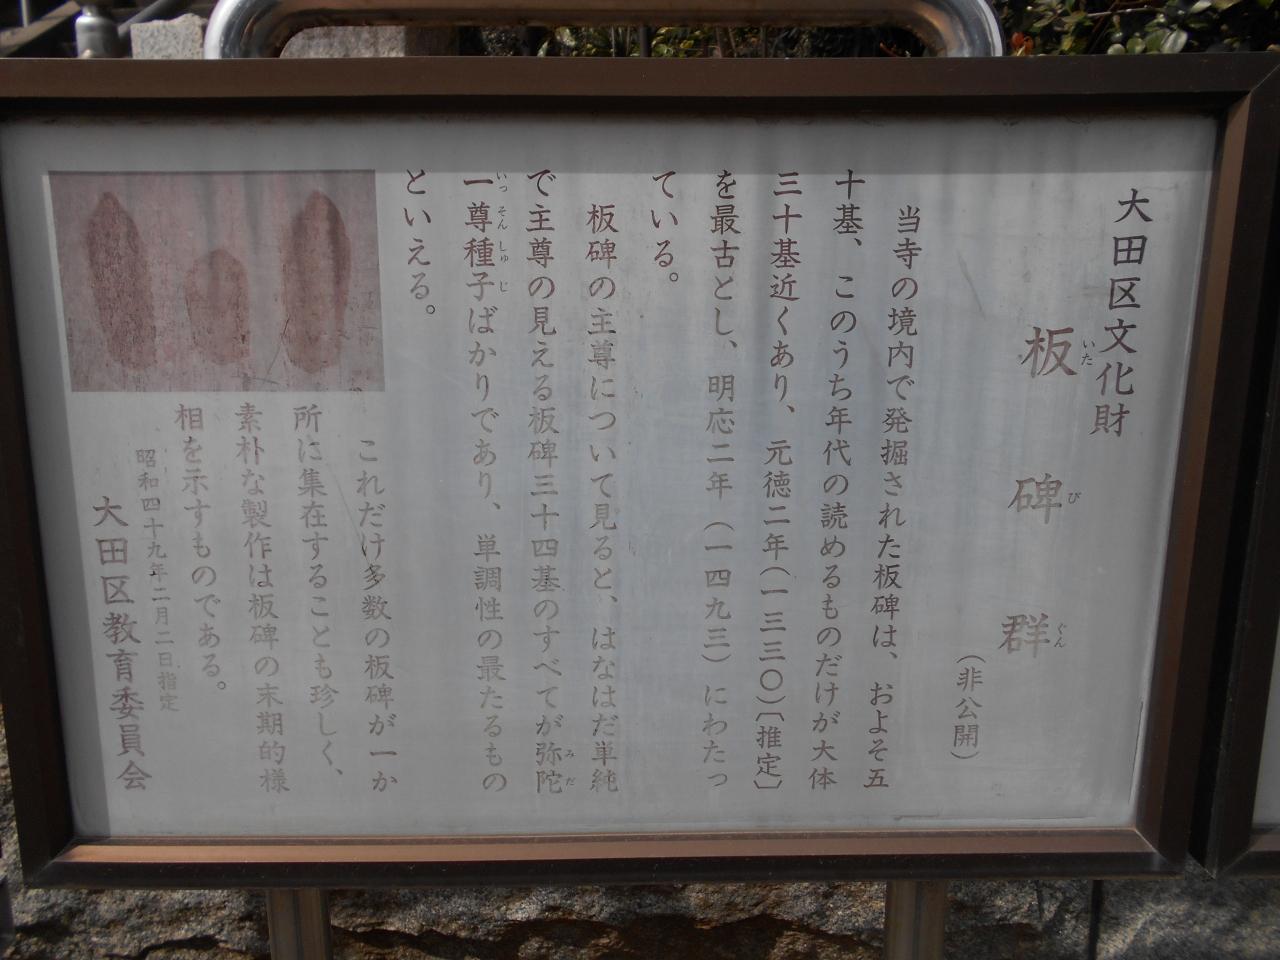 大田区文化財
板碑群
いたびぐん
（非公開）
当寺の境内で発掘された板碑は、およそ五
十基、このうち年代の読めるものだけが大体
三十基近くあり、元徳二年（一三三〇）〔推定〕
を最古とし、明応二年（一四九三）にわたっ
ている。
板碑の主尊について見ると、はなはだ単純
で主尊の見える板碑三十四基のすべてが弥陀
みだ
一尊種子ばかりであり、単調性の最たるもの
いっそんしゅじ
といえる。
これだけ多数の板碑が一か
所に集在することも珍しく、
素朴な製作は板碑の末期的様
相を示すものである。
昭和四十九年二月二日指定
大田区教育委員会